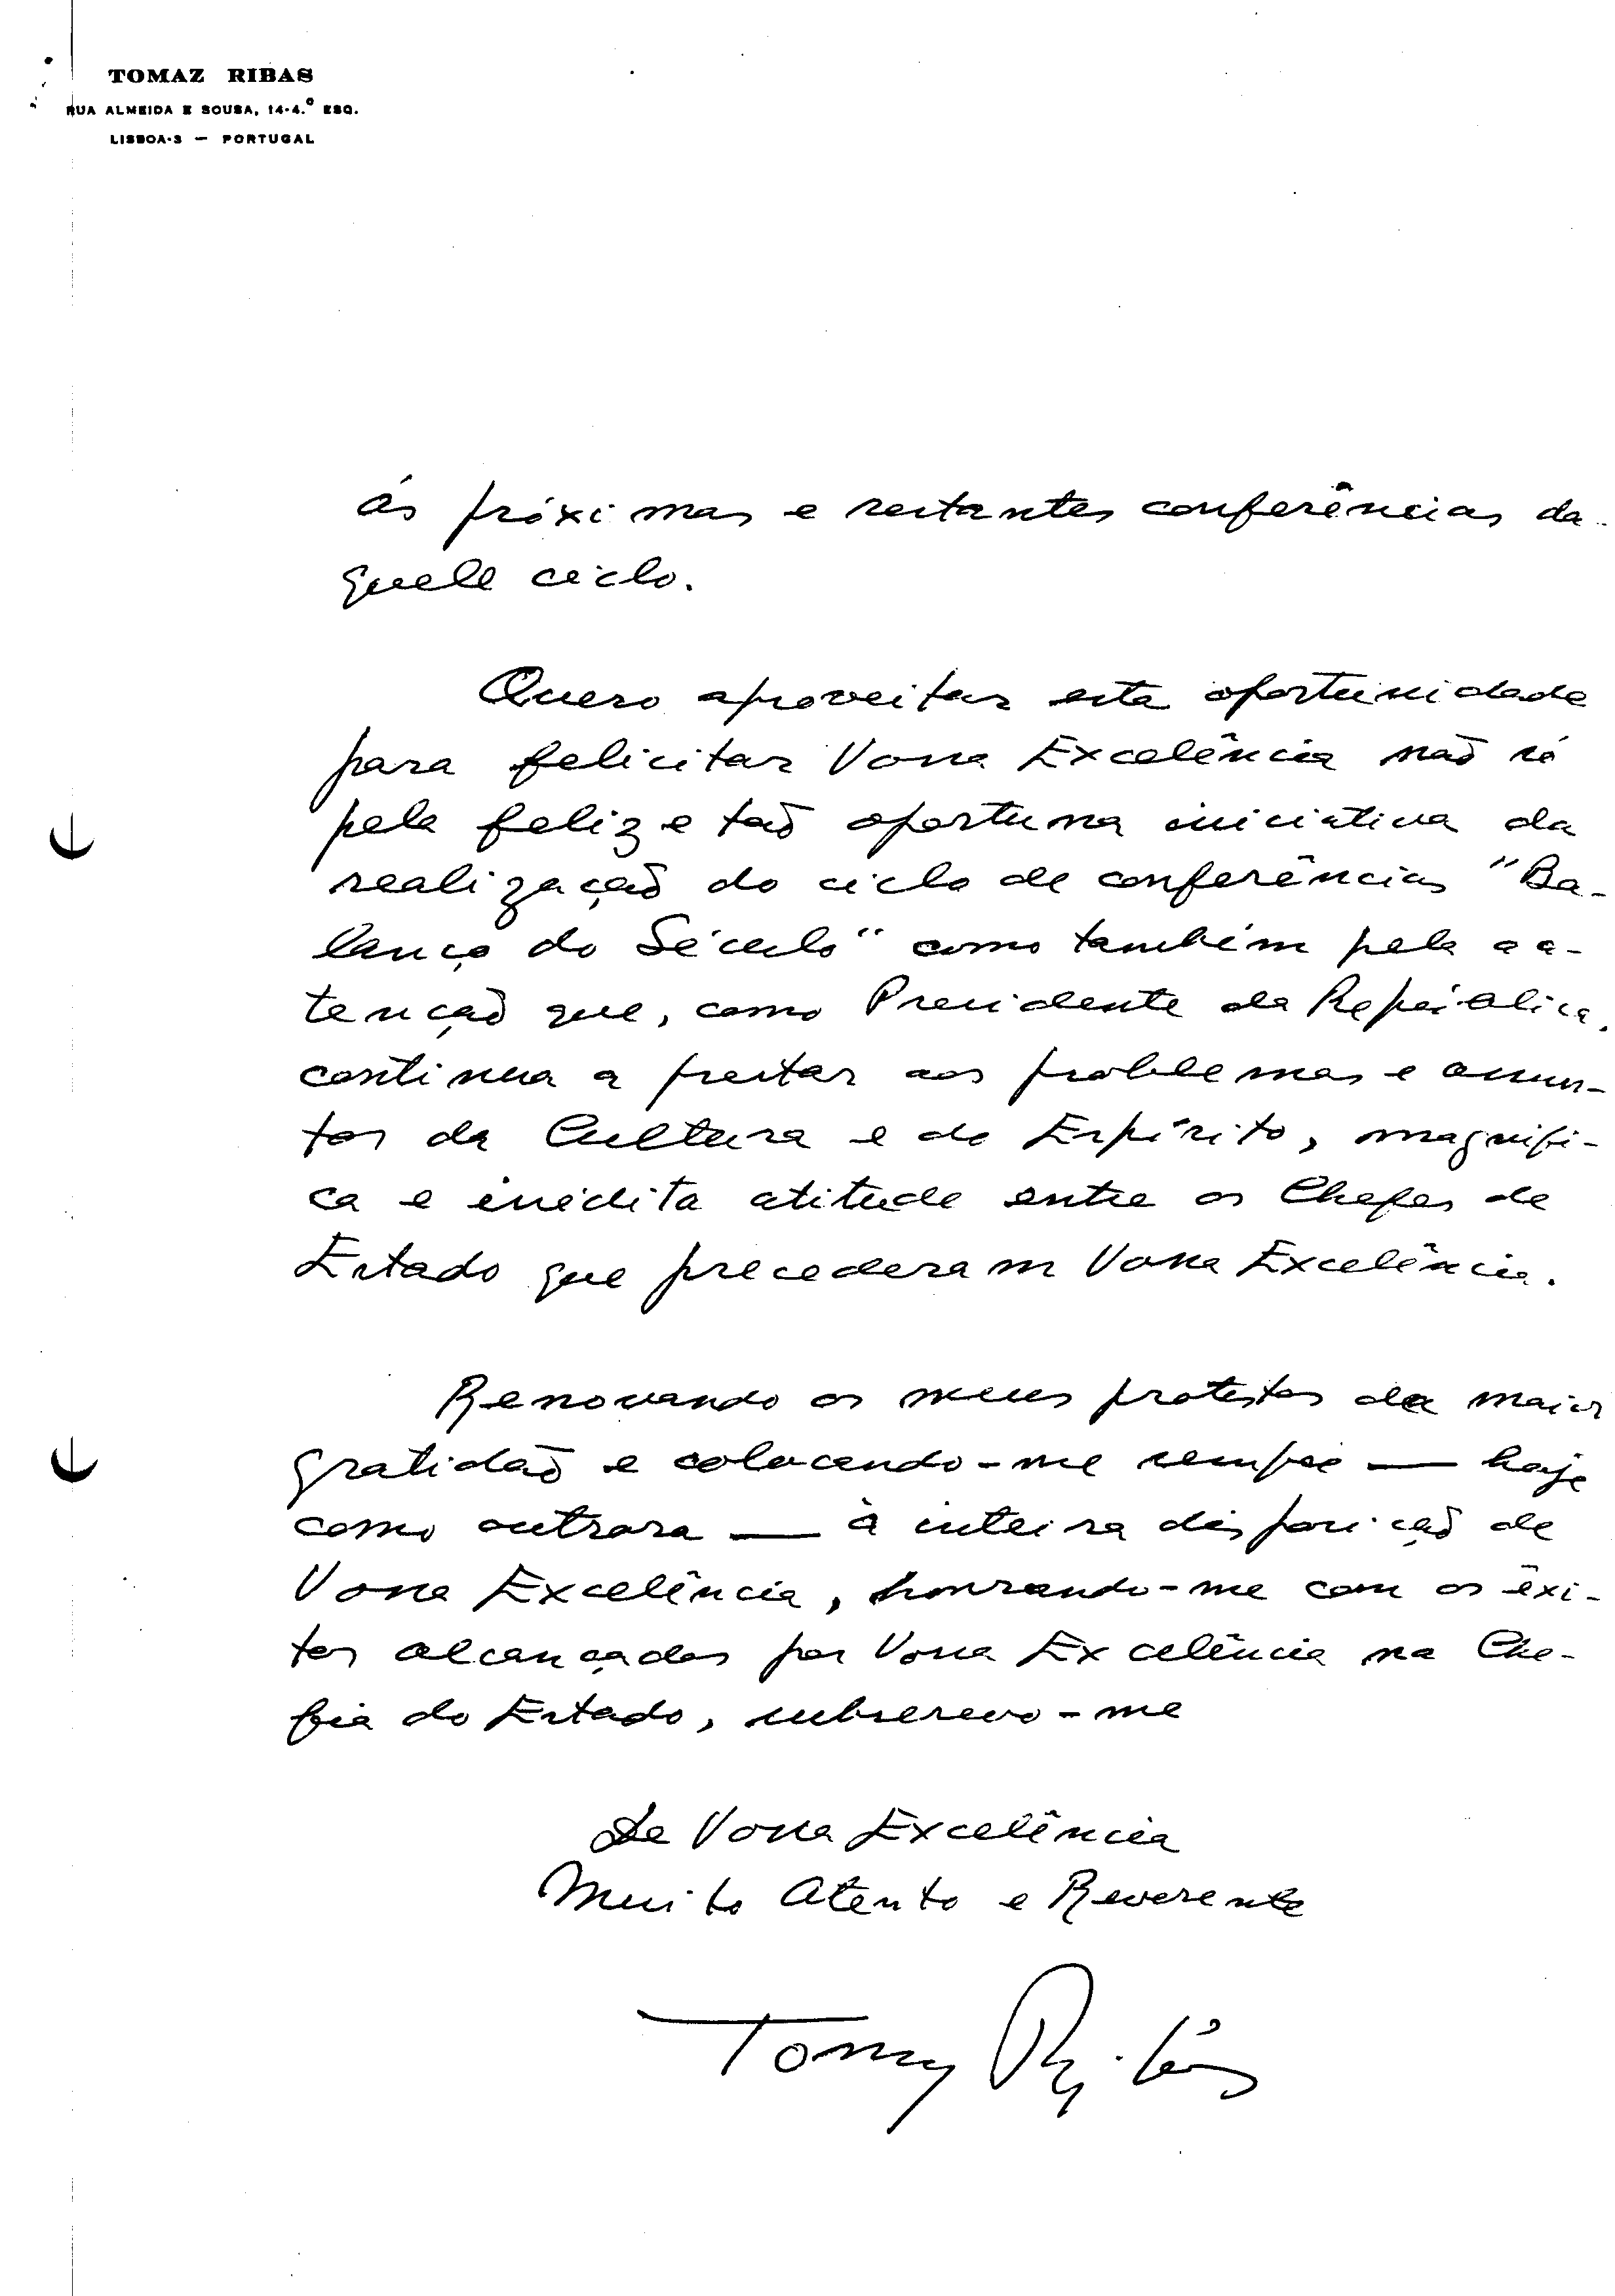 TOMAZ RIBAS
RUA ALMEIDA E SOUSA, 14-4.º ESQ.
LISBOA-3 — PORTUGAL
ás próximas e restantes conferências da-
quele ciclo.
Quero aproveitar esta oportunidade
para felicitar Vossa Excelência não só
pela feliz e tão oportuna iniciativa da
realização do ciclo de conferências "Ba-
lanço do Século" como também pela a a-
tenção que, como Presidente da República,
continua a prestar aos problemas e assun-
tos da Cultura e do Espírito, magnifi-
ca e inédita atitude entre os Chefes de
Estado que precederam Vossa Excelência.
Renovando os meus protestos da maior
gratidão e colocando-me sempre — hoje
como outrora — à inteira disposição de
Vossa Excelência, honrando-me com os êxi-
tos alcançados por Vossa Excelência na Che-
fia do Estado, subscrevo-me
de Vossa Excelência
Muito Atento e Reverente
Tomaz Ribas